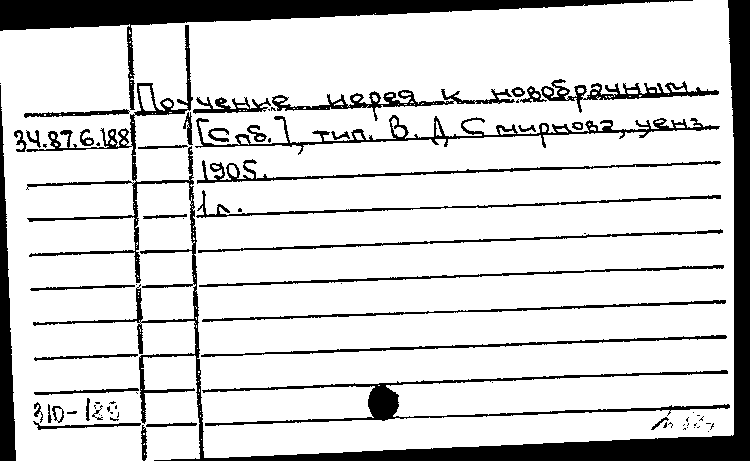 Поучение иерея к новобрачным.
34.87.6.188 [Спб.], тип. В. Д. Смирнова, ценз.
1905.
1 л.
310-189